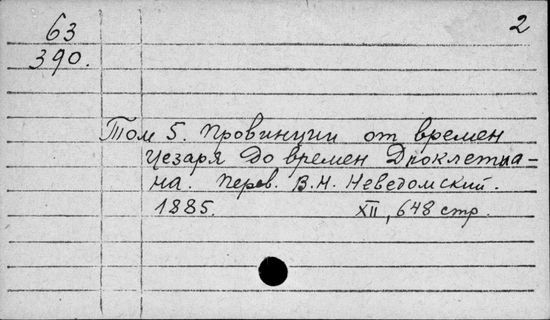 63
390.
2
Том 5. Провинции от времен
Цезаря до времен Диоклетиа-
на. Перев. В.Н. Неведомский.
1885. XII, 648 стр.